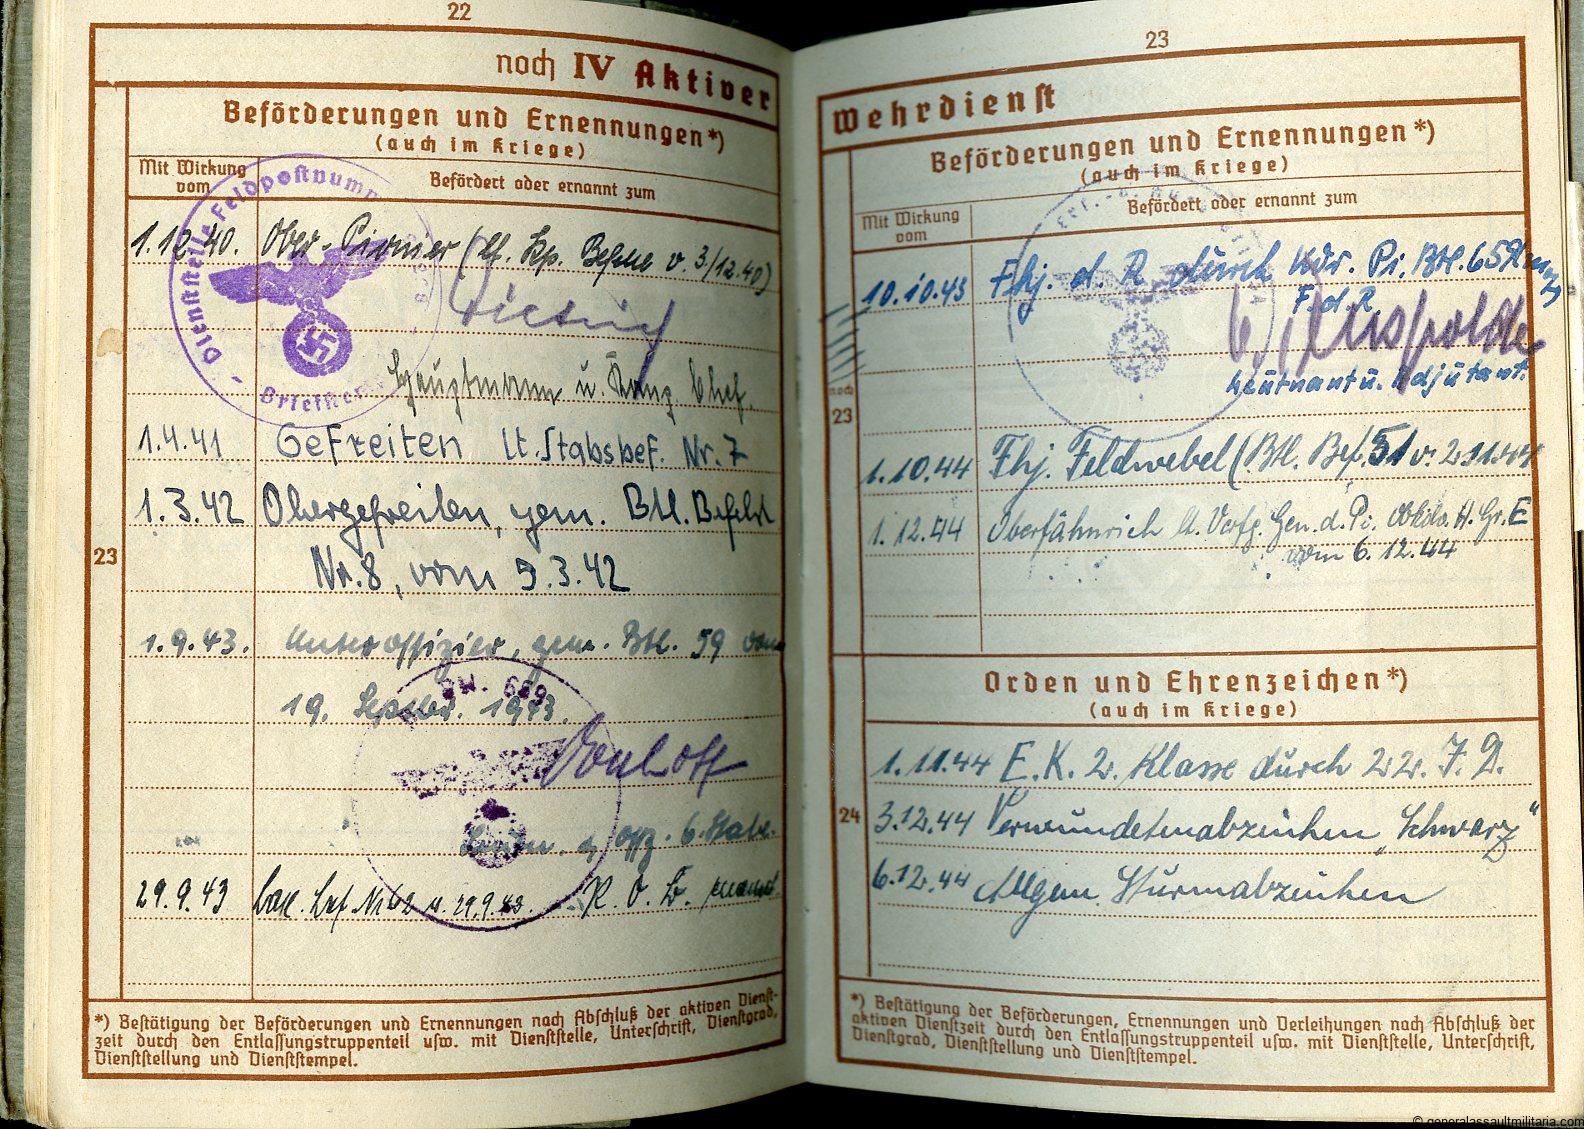 22
noch IV Aktiver
Beförderungen und Ernennungen*)
(auch im Kriege)
Mit Wirkung
vom
Befördert oder ernannt zum
Dienststelle Feldpostnumm
1.12.40. Ober-Pionier (lt. Kp. Befehl v. 3/12.40)
Dietrich
Hauptmann u. Komp. Chef.
1.4.41 Gefreiten lt. Stabsbef. Nr. 7
1.3.42 Obergefreiten, gem. Btl. Befehl
Nr. 8, vom 9.3.42
23
1.9.43. Unteroffizier, gem. Btl. 59 vom
19. Septbr. 1943.
29.9.43 Batl. Bef. Nr 62 v. 29.9.43. R. O. B. ernannt
*) Bestätigung der Beförderungen und Ernennungen nach Abschluß der aktiven Dienst-
zeit durch den Entlassungstruppenteil usw. mit Dienststelle, Unterschrift, Dienstgrad,
Dienststellung und Dienststempel.
23
Wehrdienst
Beförderungen und Ernennungen*)
(auch im Kriege)
Mit Wirkung
vom
Befördert oder ernannt zum
10.10.43 Fhj. d. R. durch Kdr. Pi. Btl. 659
F. d. R.
Leutnant u. Adjutant.
noch
23
1.10.44 Fhj. Feldwebel (Btl. Bef. 51 v. 2.11.44
1.12.44 Oberfähnrich lt. Verfg. Gen. d. Pi. Obkdo. H. Gr. E
vom 6.12.44
Orden und Ehrenzeichen*)
(auch im Kriege)
1.11.44 E.K. 2. Klasse durch 22. J. D.
24
3.12.44 Verwundetenabzeichen „Schwarz"
6.12.44 Allgem. Sturmabzeichen
*) Bestätigung der Beförderungen, Ernennungen und Verleihungen nach Abschluß der
aktiven Dienstzeit durch den Entlassungstruppenteil usw. mit Dienststelle, Unterschrift,
Dienstgrad, Dienststellung und Dienststempel.
© generalassaultmilitaria.com